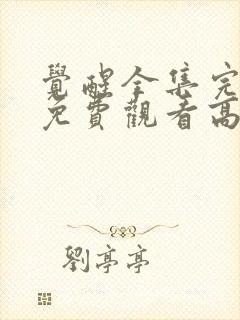 覺醒全集完
免費觀看高
劉亭亭